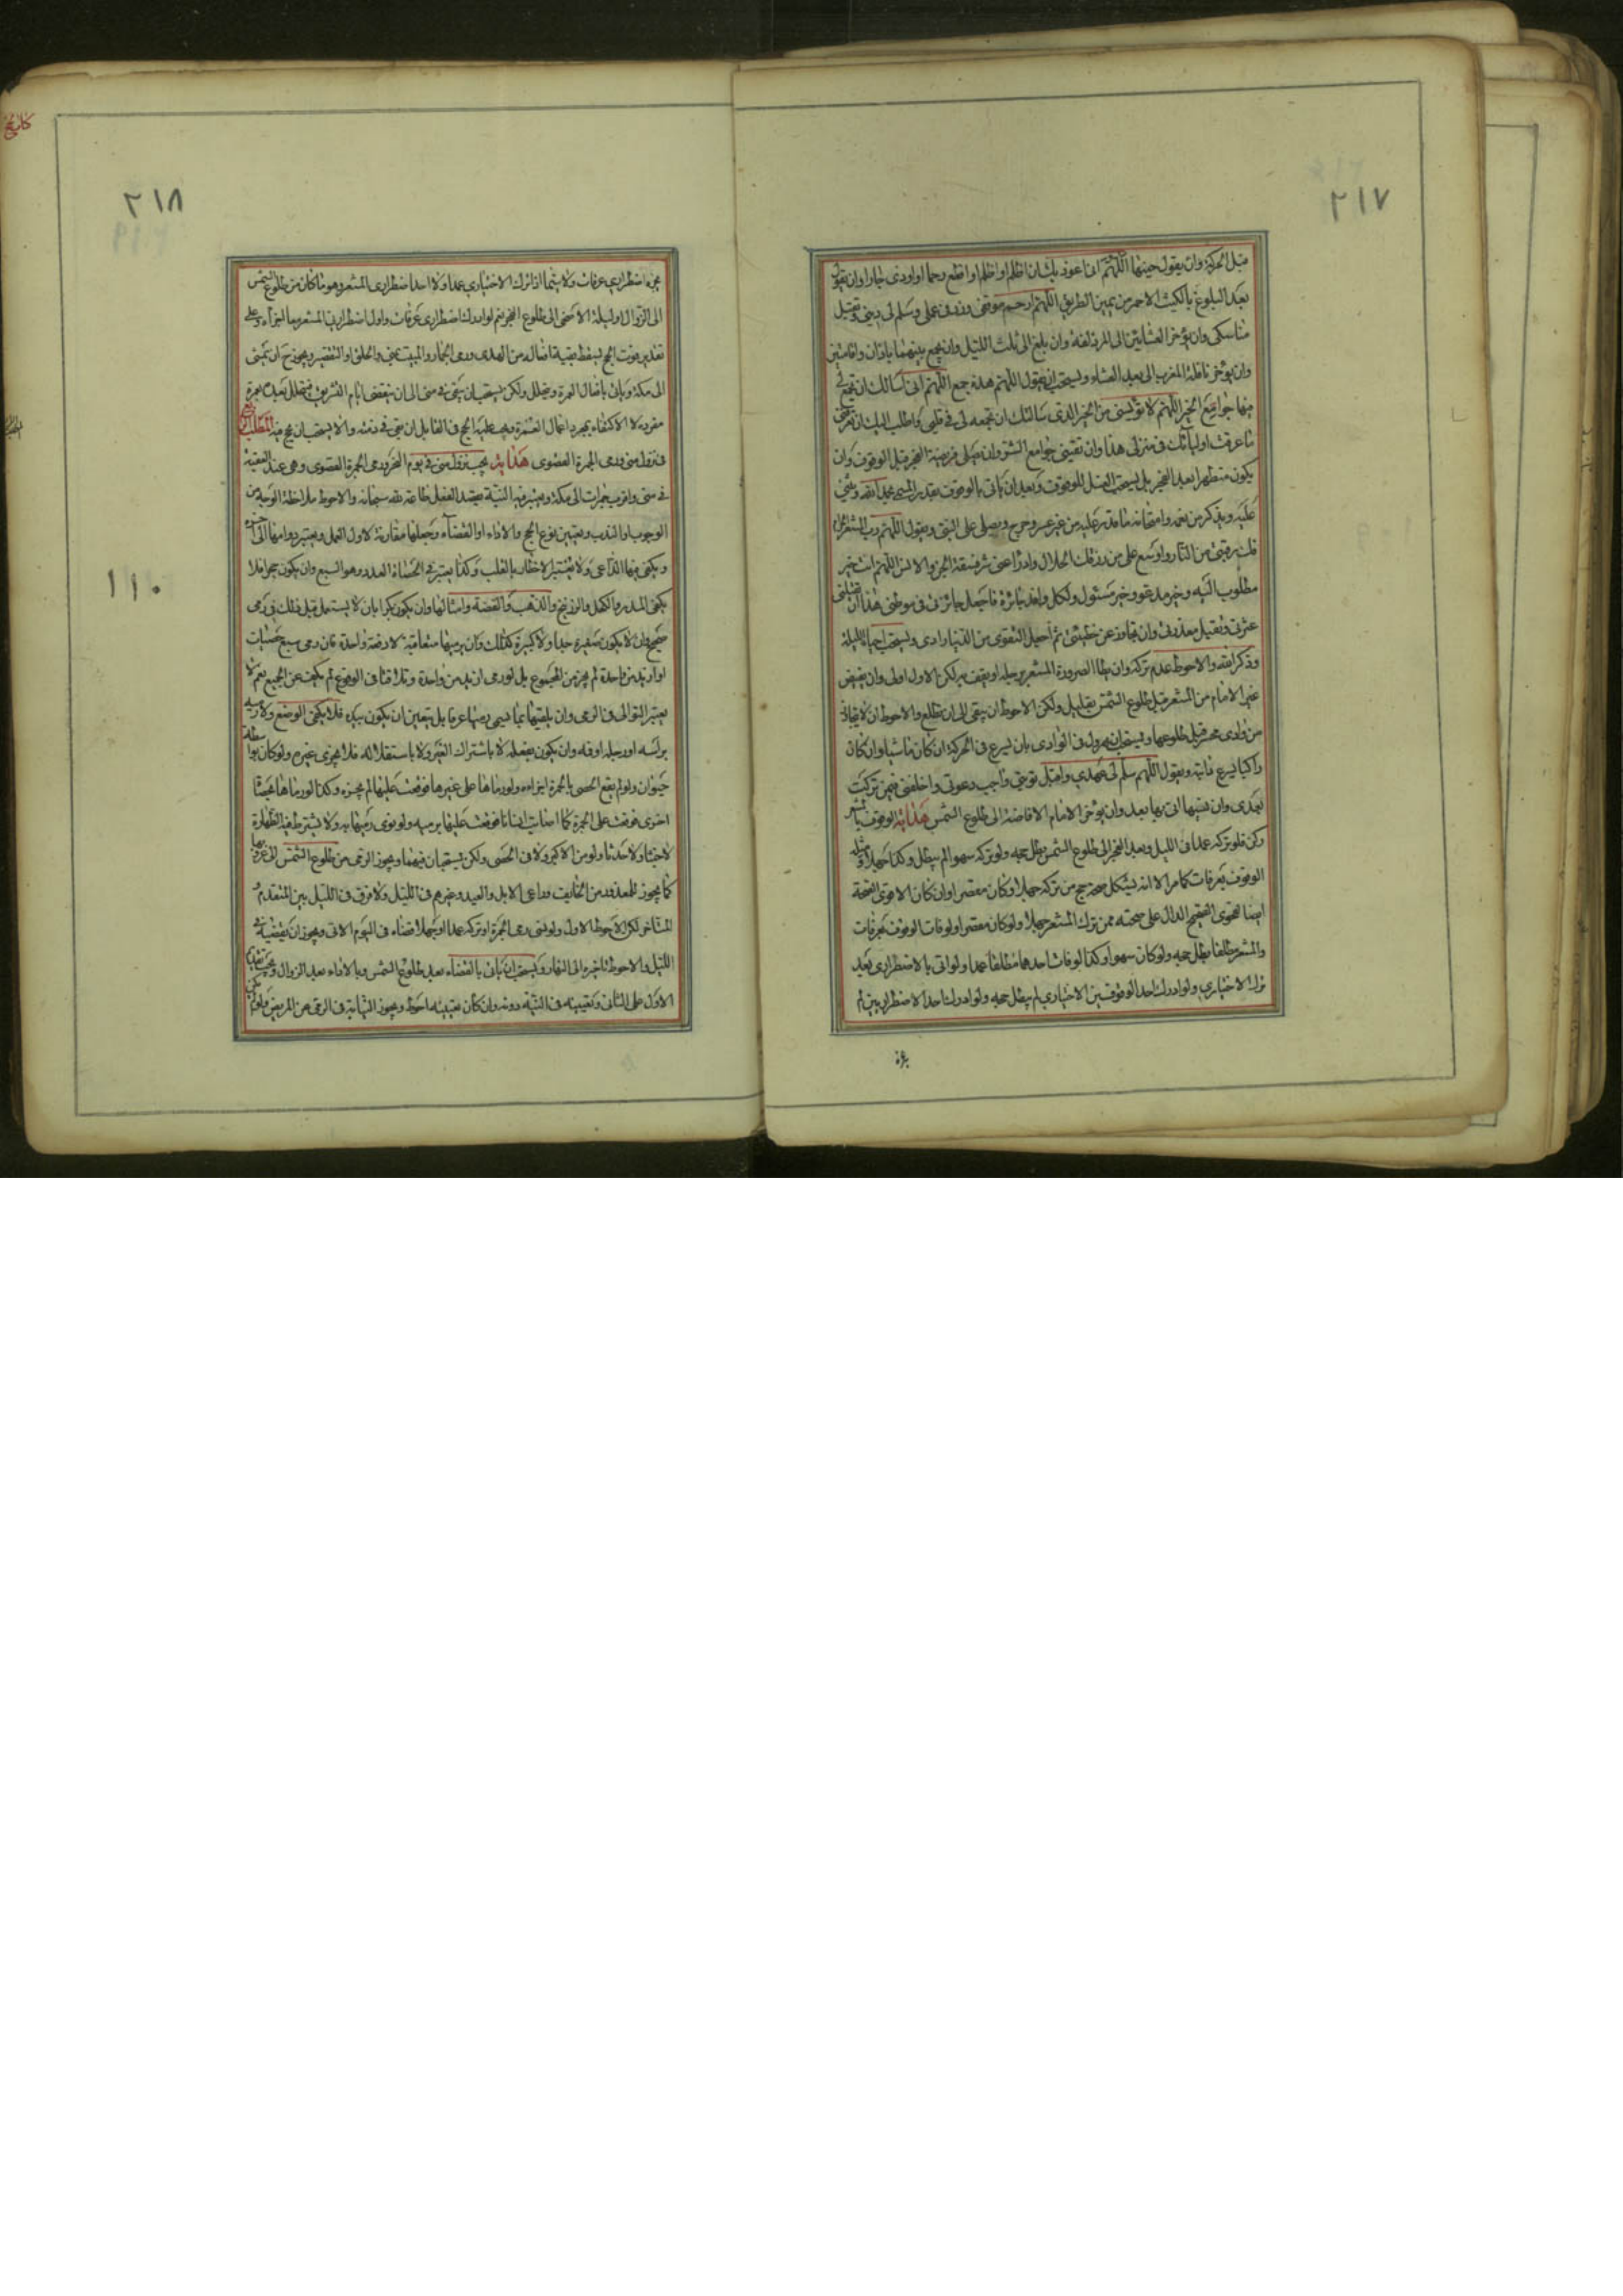 ٢١٧
قبل الحركة وان يقول حينها اللهم انى اعوذ بك ان اظلم او اظلم او اقطع رحما او اوذى جارا وان يقول
بعد البلوغ بالكثيب الاحمر من يمين الطريق اللهم ارحم موقفى وزد فى عملى وسلم لى دينى وتقبل
مناسكى وان يؤخر العشائين الى المزدلفة وان بلغ الى ثلث الليل وان يجمع بينهما باذان واقامتين
وان يؤخر نافلة المغرب الى بعد العشاء ويستحب ان يقول اللهم هذه جمع اللهم انى اسالك ان تجمع لى
فيها جوامع الخير اللهم لا تؤيسنى من الخير الذى سالتك ان تجمعه لى فى قلبى واطلب اليك ان تعرفنى
ما عرفت اوليائك فى منزلى هذا وان تقينى جوامع الشر وان يصلى فريضة الفجر قبل الوقوف وان
يكون متطهرا بعد الفجر بل يستحب الغسل للوقوف وبعد ان ياتى بالوقوف بقدر المسمى يحمد الله ويثنى
عليه ويذكر من نعمه وامتحانه ما قدر عليه من غير عسر وحرج ويصلى على النبى ويقول اللهم رب المشعر الحرام
فك رقبتى من النار واوسع على من رزقك الحلال وادرأ عنى شر فسقة الجن والانس اللهم انت خير
مطلوب اليه وخير مدعو وخير مسئول ولكل وافد جائزة فاجعل جائزتى فى موطنى هذا ان تقيلنى
عثرتى وتقبل معذرتى وان تجاوز عن خطيئتى ثم اجعل التقوى من الدنيا زادى ويستحب احياء الليلة
وذكر الله والاحوط عدم تركه وان يطا الصرورة المشعر برجله او يقف به لكن الاول اولى وان يفيض
غير الامام من المشعر قبل طلوع الشمس بقليل ولكن الاحوط ان يبقى الى ان تطلع والاحوط ان لا يتجاوز
من وادى محسر قبل طلوعها ويستحب ان يهرول فى الوادى بان يسرع فى الحركة ان كان ماشيا وان كان
راكبا يسرع دابته ويقول اللهم سلم لى عهدى واقبل توبتى واجب دعوتى واخلفنى فيمن تركت
بعدى وان نسيها اتى بها بعد وان يؤخر الامام الافاضة الى طلوع الشمس هداية الوقوف بالمشعر
ركن فلو تركه عمدا فى الليل وبعد الفجر الى طلوع الشمس بطل حجه ولو تركه سهوا لم يبطل وكذا جهلا ومثله
الوقوف بعرفات كما مر الا انه يشكل صحة حج من تركه جهلا وكان مقصرا وان كان الاقوى الصحة
ايضا لفحوى الصحيح الدال على صحته ممن ترك المشعر جهلا ولو كان مقصرا ولو فات الوقوف بعرفات
والمشعر مطلقا بطل حجه ولو كان سهوا وكذا لو فات احدهما مطلقا عمدا ولو اتى بالاضطرارى بعد
ترك الاختيارى ولو ادرك احد الوقوفين الاختيارى لم يبطل حجه ولو ادرك احد الاضطراريين لم
يجزه
٢١٨
يجزه اضطرارى عرفات ولا سيما اذا ترك الاختيارى عمدا ولا احد اضطرارى المشعر وهو ما كان من طلوع الشمس
الى الزوال او ليلة الاضحى الى طلوع الفجر نعم لو ادرك اضطرارى عرفات واول اضطرارى المشعر فيها اجزاء وعلى
تقدير فوت الحج يسقط بقية افعاله من الهدى ورمى الجمار والمبيت بمنى والحلق او التقصير ويجوز ح ان يمشى
الى مكة وياتى بافعال العمرة ويتحلل ولكن يستحب ان يبقى فى منى الى ان ينقضى ايام التشريق فيتحلل بعده بعمرة
مفردة لا الاكتفاء بمجرد اعمال العمرة ويجب عليه الحج فى القابل ان بقى فى ذمته والا يستحب ان يحج فيه المطلب
فى نزول منى ورمى الجمرة القصوى هداية يجب نزول منى فى يوم النحر ورمى الجمرة القصوى وهى عند العقبة
فى منى واقرب جمرات الى مكة ويعتبر فيه النية بقصد الفعل طاعة لله سبحانه والاحوط ملاحظة الوجه من
الوجوب او الندب وتعيين نوع الحج والاداء او القضاء وجعلها مقارنة لاول العمل ويعتبر دوامها الى آخره
ويكفى فيها الداعى ولا يعتبر الاخطار بالقلب وكذا يعتبر فى الحصاة العدد وهو السبع وان يكون حجرا فلا
يكفى المدر والكحل والزرنيخ والذهب والفضة وامثالها وان يكون بكرا بان لا يستعمل قبل ذلك فى رمى
صحيح وان لا يكون صغيرة جدا ولا كبيرة كذلك وان يرميها متعاقبة لا دفعة واحدة فان رمى سبع حصيات
او ازيد من واحدة لم يجز من المجموع بل لو رمى ازيد من واحدة وتلاقتا فى الوقوع لم يكف عن الجميع نعم لا
يعتبر التوالى فى الرمى وان يلقيها بما يسمى رميها عرفا بل يتعين ان يكون بيده فلا يكفى الوضع ولا رميه
برأسه او رجله او فمه وان يكون بفعله لا باشتراك الغير ولا باستقلاله فلا يجزى غيره ولو كان بواسطة
حيوان ولو لم يقع الحصى بالجمرة اجزاءه ولو رماها على غيرها فوقعت عليها لم يجزه وكذا لو رماها
اخرى فوقعت على الجمرة كما اصابت انسانا فوقعت عليها برميه ولو نوى رميها به ولا يشترط فيه الطهارة
لا خبثا ولا حدثا ولو من الاكبر ولا فى الحصى ولكن يستحبان فيهما ويجوز الرمى من طلوع الشمس الى غروبها
كما يجوز للمعذور من الخائف وراعى الابل والعبيد وغيرهم فى الليل ولا فرق فى الليل بين المتقدم و
المتاخر لكن الاحوط الاول ولو نسى رمى الجمرة او تركه عمدا او جهلا قضاه فى اليوم الاتى ويجوز ان يقضيه فى
الليل والاحوط تاخيره الى النهار ويستحب ان ياتى بالقضاء بعد طلوع الشمس وبالاداء بعد الزوال ويجب تقديم
الاول على الثانى وتعيينه فى النية دونه وان كان تعيينه احوط ويجوز النيابة فى الرمى عن المريض ولو لم يكن
١١٠